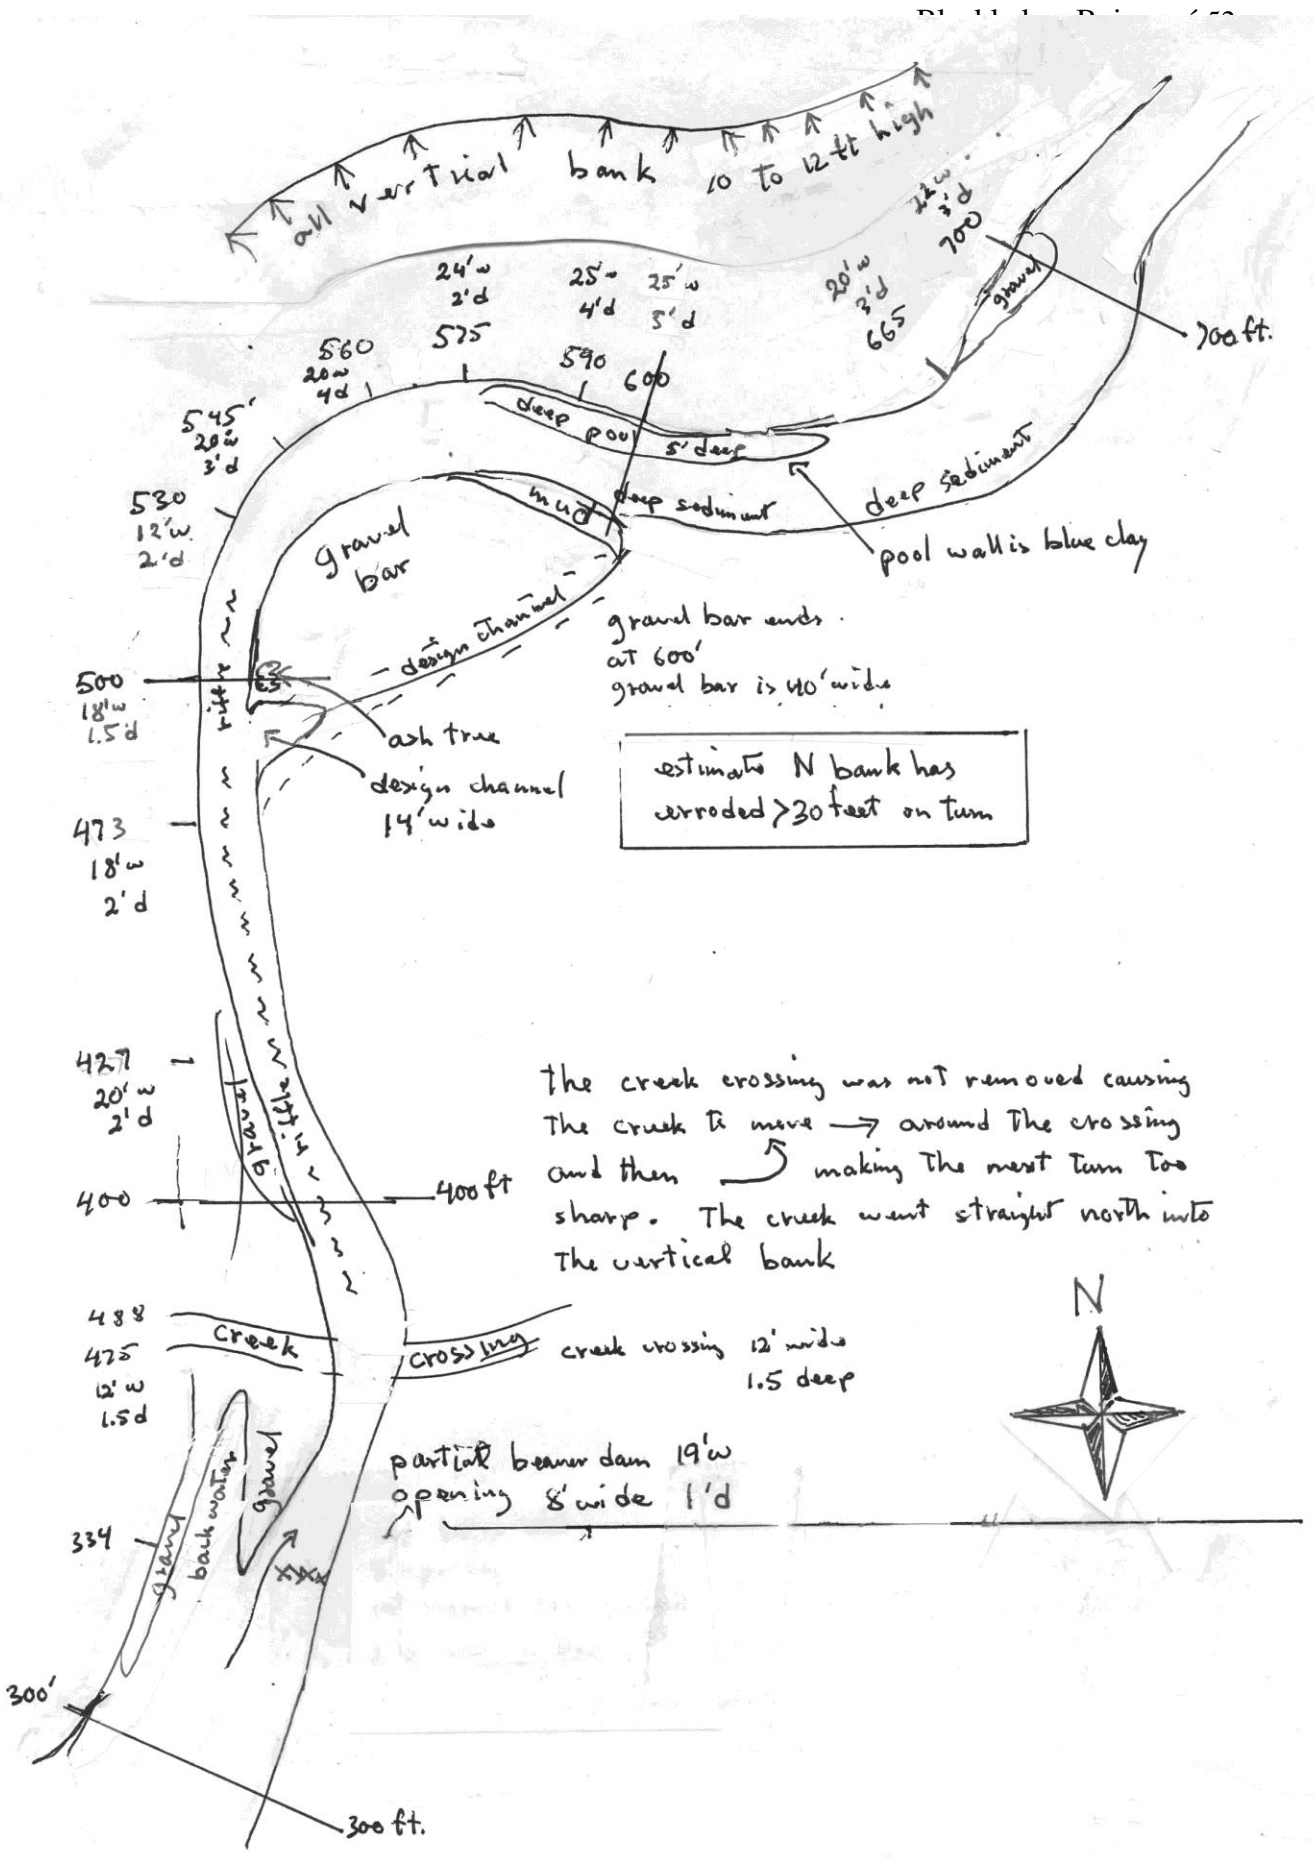 all vertrial bank 10 to 12 ft high
22'w
3'd
700
20'w
3'd
665
gravel
700 ft.
24'w
2'd
575
25'w
4'd
590
25'w
5'd
600
560
20w
4d
545'
20'w
3'd
530
12'w
2'd
deep pool 5' deep
mud
deep sediment
deep sediment
pool wall is blue clay
gravel
bar
design channel
gravel bar ends
at 600'
gravel bar is 40' wide
500
18'w
1.5'd
riffle
ash tree
design channel
14' wide
estimate N bank has
erroded >30 feet on turn
473
18'w
2'd
427
20'w
2'd
gravel
riffle
400
400 ft
The creek crossing was not removed causing
the creek to move → around the crossing
and then making the next turn too
sharp. The creek went straight north into
the vertical bank
N
488
475
12'w
1.5d
creek crossing
creek crossing 12' wide
1.5 deep
partial beaver dam 19'w
opening 8' wide 1'd
334
gravel
backwater
gravel
xxxx
300'
300 ft.